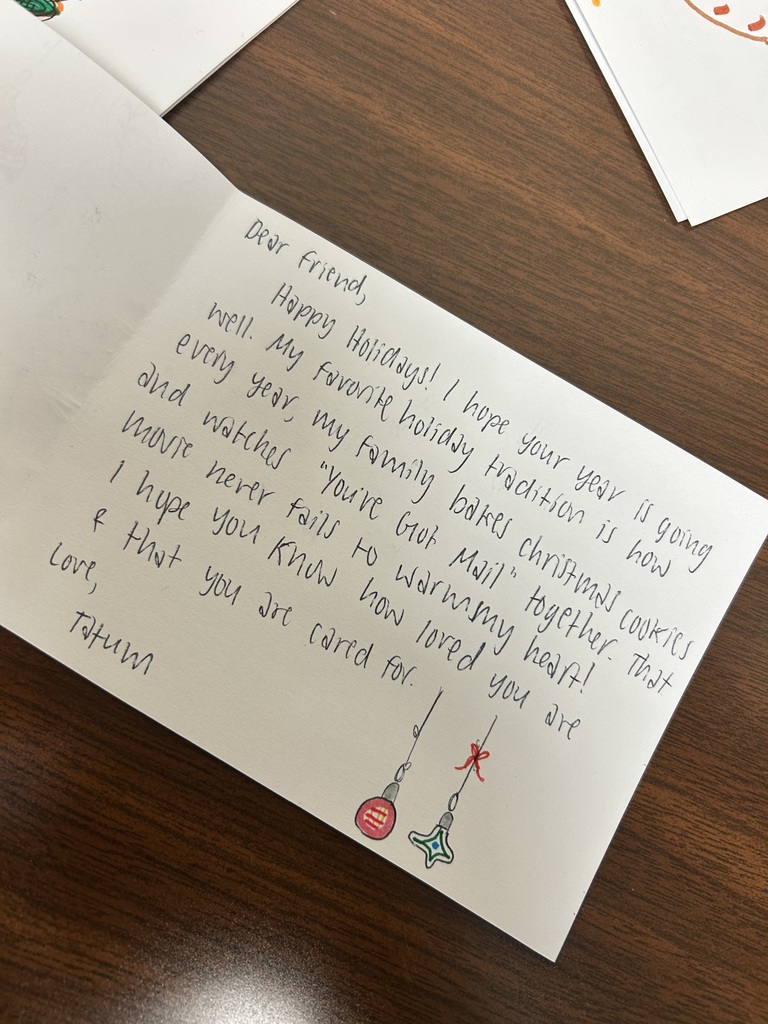 Dear friend,
Happy Holidays! I hope your year is going
well. My favorite holiday tradition is how
every year, my family bakes christmas cookies
and watches "You've Got Mail" together. That
movie never fails to warm my heart!
I hope you know how loved you are
& that you are cared for.
Love,
Tatum